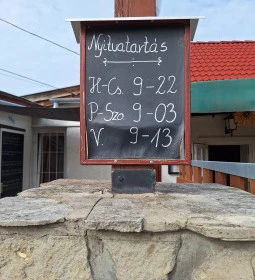 Nyitvatartás
H-Cs. 9-22
P-Szo 9-03
V. 9-13